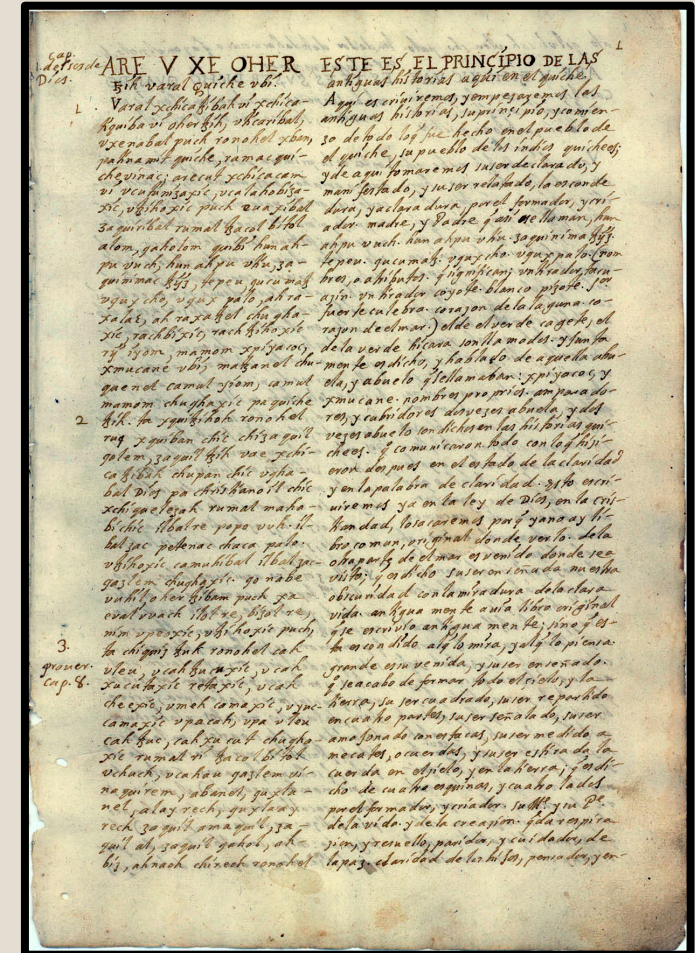 1
cap.
de
Dios.
1
2
3.
prover.
cap. 8.
ARE V XE OHER
tzih varal Quiche ubi.
Varal xchicatzibah vi xchica-
tiquiba vi oher tzih, uticaribal,
uxenabal puch ronohel xban,
pa tinamit quiche, ramac qui-
che vinac; arecut xchicacam
vi ucutunizaxic, ucalahobiza-
xic, utzihoxic puch euaxibal
zaquiribal rumal tzacol bitol
alom, qaholom quibi hun ah-
pu vuch, hun ahpu utiu, za-
quinimac tzijz, tepeu, qucumatz
uqux cho, uqux palo, ah ra-
xalac, ah raxatzel chugha-
xic, rachbixic, rachtzihoxic
rij iyom, mamom xpiyacoc,
xmucane ubi, matzanel chu-
quenel camul iyom, camul
mamom chughaxic pa quiche
tzih. ta xquitzihoh ronohel
ruq xquiban chic chi zaquil
qolem, zaquil tzih vae xchi-
catzibah chupan chic ugha-
bal Dios pa christianoil chic
xchiquelezah rumal maha-
bi chic ilbal re popo vuh. il-
bal zac petenac chaca palo.
utzihoxic camuhibal ilbal zac-
qazlem chughaxic. qo nabe
vuhil, oher tzibam puch xa
eval uvach ilol re, bizol re,
nim upeoxic, utzihoxic puch,
ta chi quiz tzuk ronohel cah
uleu, ucah tzucuxic, ucah
xucutaxic retaxic, ucah
cheexic, umeh camaxic, uyuc-
camaxic upa cah, upa uleu
cah tzuc, cah xucut chugha-
xic rumal ri tzacol bitol
uchuch, ucahau qazlem vi-
naquirem, abanel, quxla-
nel, alay rech, quxlaay
rech zaquil amaquil, za-
quil al, zaquil qahol, ah-
biz, ahnaoh chirech ronohel
ESTE ES EL PRINCIPIO DE LAS
antiguas historias aqui en el quiche.
Aqui escriviremos, y empezaremos las
antiguas historias, su principio, y comien-
zo de todo lo q fue hecho en el pueblo de
el quiche, su pueblo de los indios quichees;
y de aqui tomaremos su ser declarado, y
manifestado, y su ser relatado, la escon de
dura, y aclaradura, por el formador, y cri-
ador madre, y Padre q asi se llaman, hun
ahpu vuch. hun ahpu utiu. zaquinima tzijz.
tepeu. qucumatz. uqux cho. uqux palo. (nom
bres, o atributos. q significan; un tirador tacu-
azin. un tirador coyote. blanco pizote. Señor
fuerte culebro. corazon de la laguna. co-
razon de el mar.) el de el verde cagete, el
de la verde hicara son llamados. y junta
mente es dicho, y hablado de aquella abu-
ela, y abuelo q se llamaban: xpiyacoc, y
xmucane. nombres proprios. amparado-
res, y cubridores dos vezes abuela, y dos
vezes abuelo son dichos en las historias qui-
chees. q comunicaron todo con lo q hizi-
eron despues en el estado de la claridad
y en la palabra de claridad. Esto escri-
viremos ya en la ley de Dios, en la cris-
tiandad, lo sacaremos porq ya no ay li-
bro comun, original donde verlo. de la
otra parte de el mar es venido donde se a
visto; q es dicho su ser enseñada nuestra
obscuridad con la miradura de la clara
vida. antiguamente avia libro original
q se escrivio antiguamente; sino q es-
ta escondido al q lo mira, y al q lo piensa.
grande es su venida, y su ser enseñado.
q se acabo de formar todo el cielo, y la
tierra, su ser cuadrado, su ser repartido
en cuatro partes, su ser señalado, su ser
amojonado con estacas, su ser medido a
mecates, o cuerdas, y su ser estirada la
cuerda en el zielo, y en la tierra; q es di-
cho de cuatro esquinas, y cuatro lados
por el formador, y criador. su Me. y su Pe.
de la vida. y de la creazion. q da respira-
zion, y resuello, paridora, y cuidadora, de
la paz. claridad de los hijos, pensador, y en-